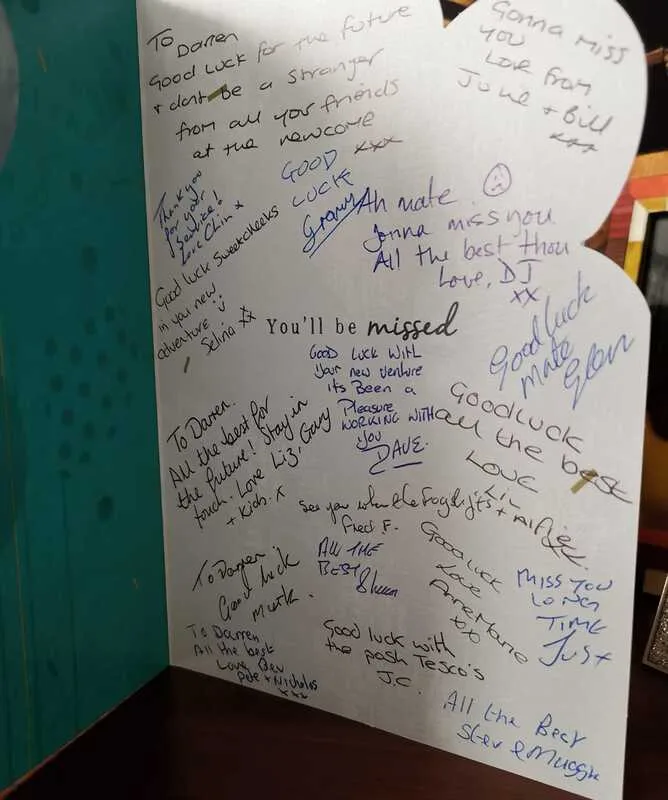 To Darren
Good luck for the future
+ dont be a stranger
from all your friends
at the newcome
xxx
Gonna miss
you
Love from
June + Bill
xxx
Thank you
for your
service!
Love Chin x
GOOD
LUCK
Ah mate.
Gonna miss you
All the best thou
Love, DJ
xx
Good luck Sweetcheeks
in you new
adventure
Selina xx
You'll be missed
Good luck with
your new venture
its Been a
Pleasure
WORKING WITH
you
DAVE.
Good luck
mate
Glen
Good luck
all the best
Love
Liz
To Darren.
All the best for
the future! Stay in
touch. Love Liz, Gary
+ Kids. x
See you when the fog lifts
Fred F.
To Darren
Good luck
Mark.
ALL THE
BEST
Good luck
Love
AnneMarie
xx
MISS YOU
LONG
TIME
To Darren
All the best
Love Bev
Pete + Nicholas
xxx
Good luck with
the posh Tesco's
J.C.
All the Best
Steve Maggie